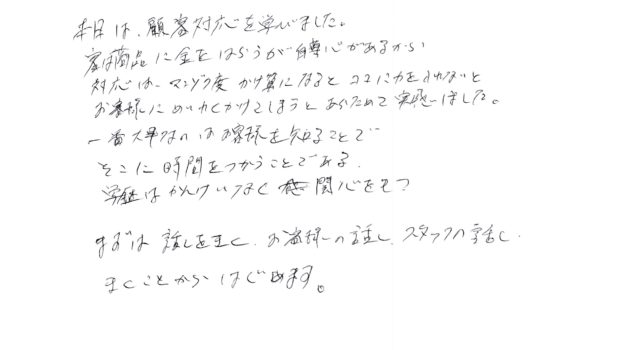 本日は、顧客対応を学びました。
客は商品に金をはらうが自尊心があるから
対応は、マンゾク度 かけ算になると ココに力を入れないと
お客様にめいわくかけてしまうと あらためて実感しました。
一番大事なのはお客様を知ることで
そこに時間をつかうことである。
学歴はかんけいなく 関心をもつ
まずは 話しをきく、お客様の話し、スタッフの話し
きくことから はじめます。